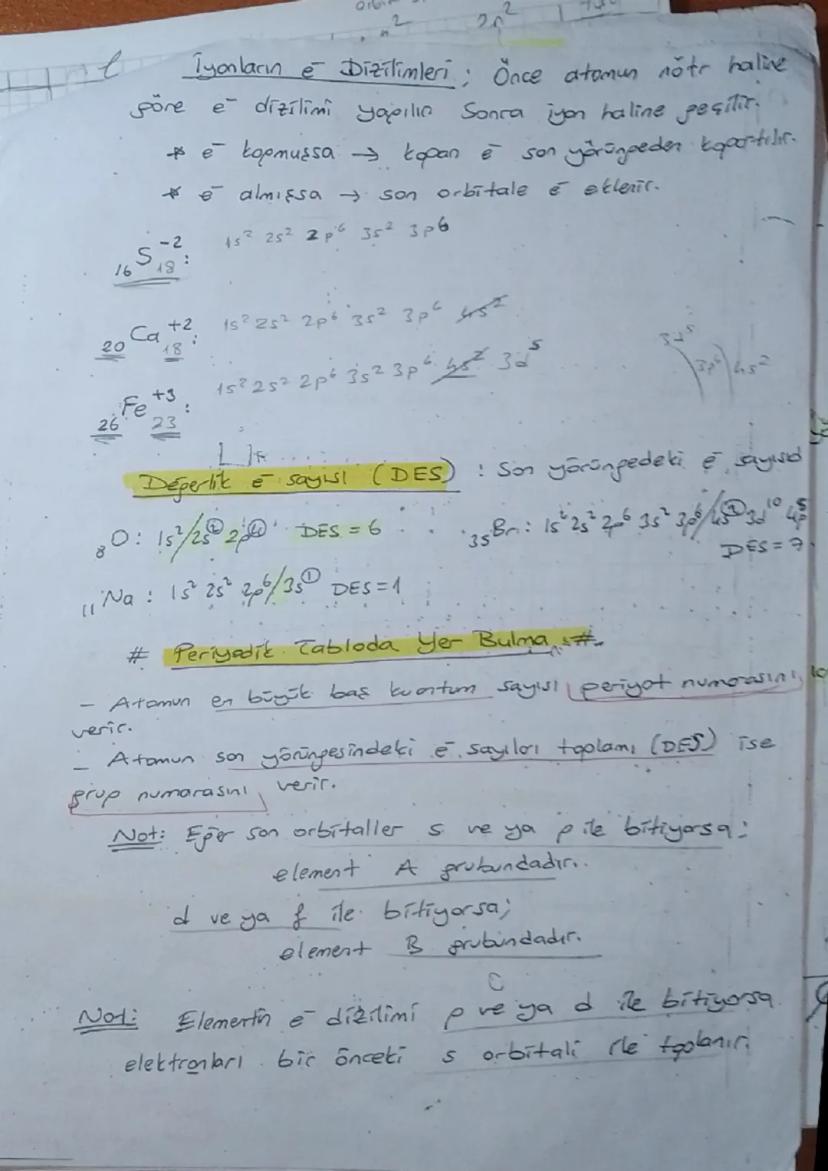 n² 2n²
İyonların e⁻ Dizilimleri; Önce atomun nötr haline
göre e⁻ dizilimi yapılır sonra iyon haline geçilir.
* e⁻ kopmuşsa → kopan e⁻ son yörüngeden kopartılır.
* e⁻ almışsa → son orbitale e⁻ eklenir.
₁₆S₁₈⁻²: 1s² 2s² 2p⁶ 3s² 3p⁶
₂₀Ca₁₈⁺²: 1s² 2s² 2p⁶ 3s² 3p⁶ 4s²
₂₆Fe₂₃⁺³: 1s² 2s² 2p⁶ 3s² 3p⁶ 4s² 3d⁵
3d⁵ 3p⁶ 4s²
Değerlik e⁻ sayısı (DES) : Son yörüngedeki e⁻ sayısıd
₈O: 1s²/2s² 2p⁴ DES = 6
₃₅Br: 1s² 2s² 2p⁶ 3s² 3p⁶/4s² 3d¹⁰ 4p⁵
DES = 7
₁₁Na: 1s² 2s² 2p⁶/3s¹ DES = 1
# Periyodik Tabloda Yer Bulma #
- Atomun en büyük baş kuantum sayısı periyot numarasını
verir.
- Atomun son yörüngesindeki e⁻ sayıları toplamı (DES) ise
grup numarasını verir.
Not: Eğer son orbitaller s ve ya p ile bitiyorsa;
element A grubundadır.
d ve ya f ile bitiyorsa;
element B grubundadır.
Not: Elementin e⁻ dizilimi p ve ya d ile bitiyorsa
elektronları bir önceki s orbitali ile toplanır.